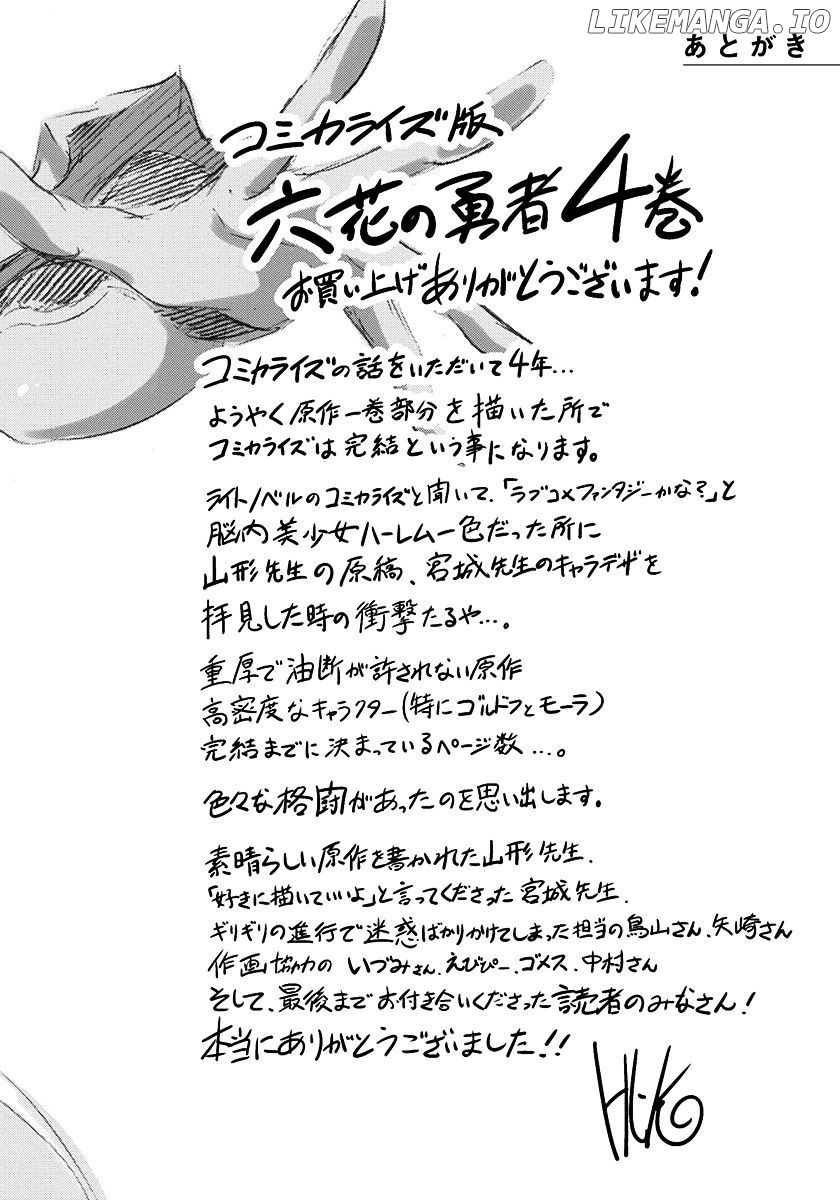 LIKEMANGA.IO
あとがき
コミカライズ版
六花の勇者4巻
お買い上げありがとうございます!
コミカライズの話をいただいて4年…
ようやく原作一巻部分を描いた所で
コミカライズは完結という事になります。
ライトノベルのコミカライズと聞いて、「ラブコメファンタジーかな?」と
脳内美少女ハーレム一色だった所に
山形先生の原稿、宮城先生のキャラデザを
拝見した時の衝撃たるや…。
重厚で油断が許されない原作
高密度なキャラクター(特にゴルドフとモーラ)
完結までに決まっているページ数…。
色々な格闘があったのを思い出します。
素晴らしい原作を書かれた山形先生、
「好きに描いていいよ」と言ってくださった宮城先生、
ギリギリの進行で迷惑ばかりかけてしまった担当の鳥山さん、矢崎さん
作画協力のいづみさん、えびぴー、ゴメス、中村さん
そして、最後までお付き合いくださった読者のみなさん!
本当にありがとうございました!!